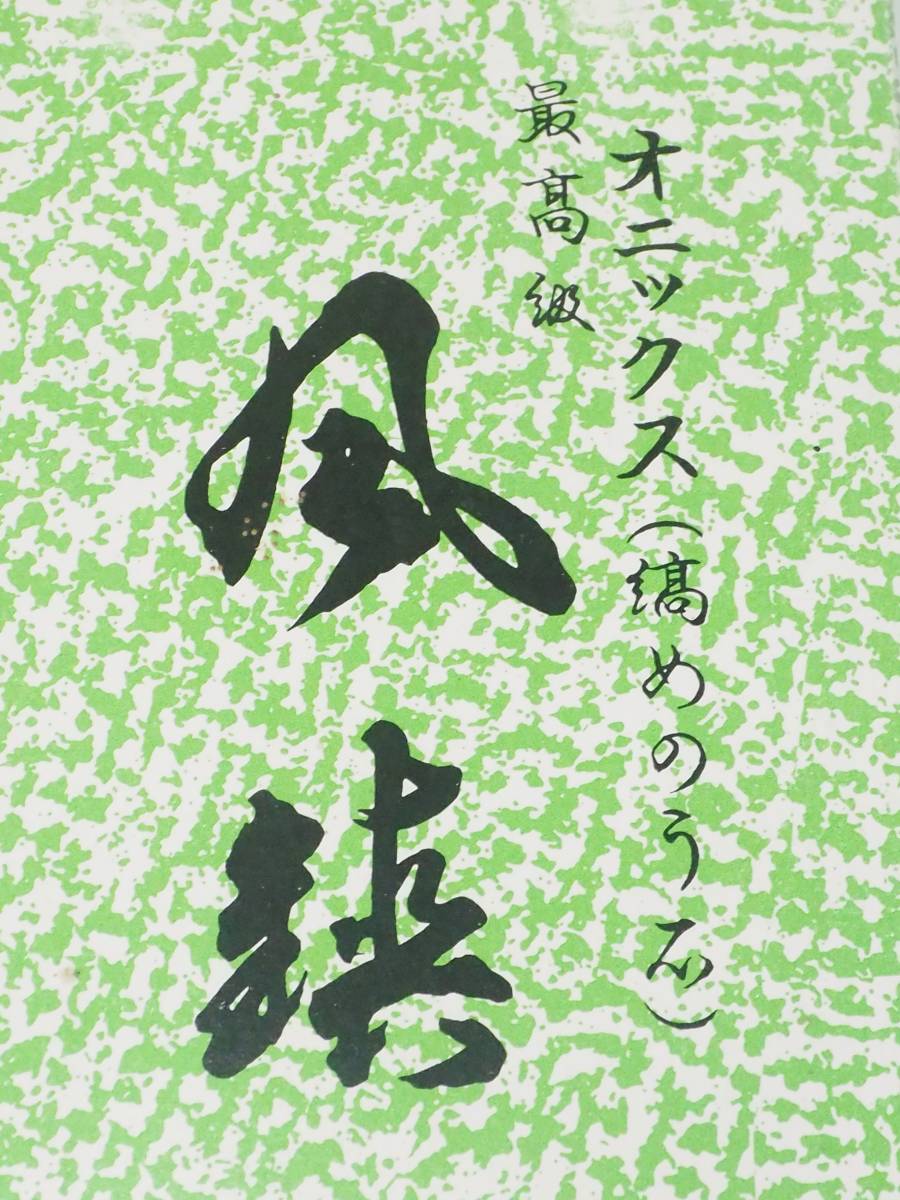 オニックス(縞めのう石)
最高級
風鎮